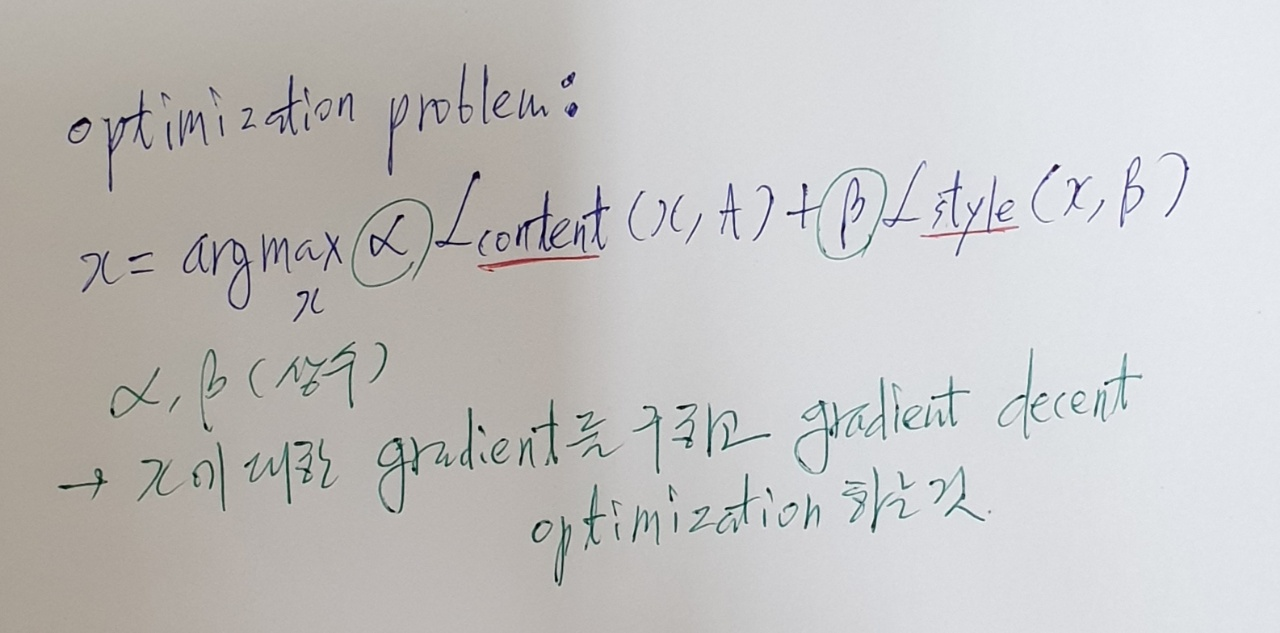 optimization problem:
x = argmax α L content (x, A) + β L style (x, β)
x
α, β (상수)
→ x에 대한 gradient를 구하고 gradient decent
optimization 하는것.